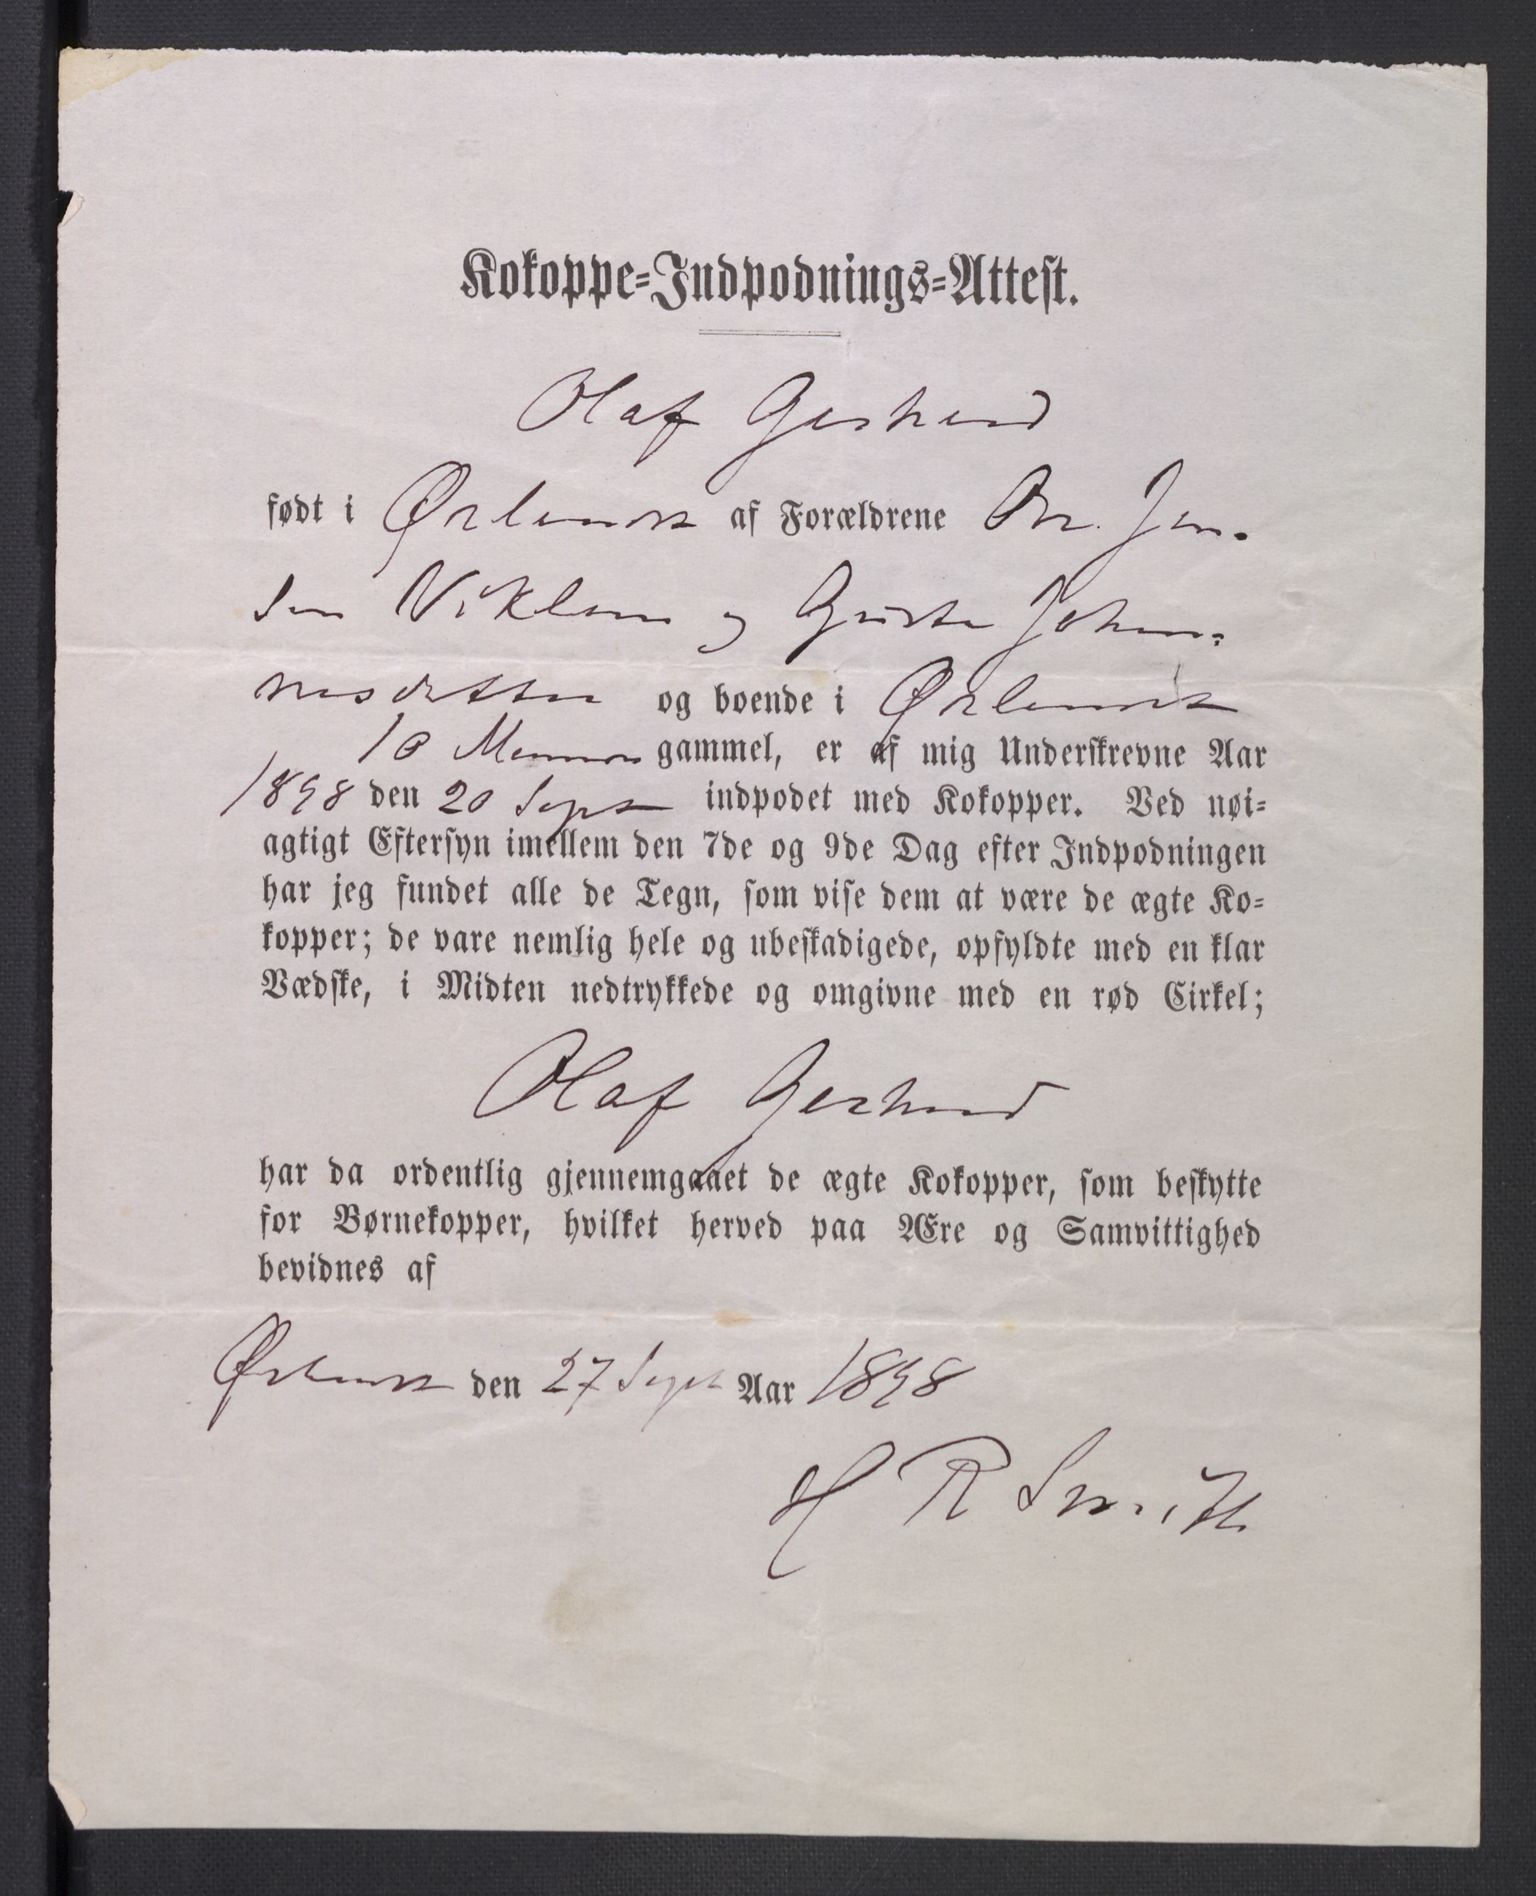 Kokoppe-Indpodnings-Attest.
Olaf Gerhard
født i Ørlandet af Forældrene Ole Jen-
sen Viklem og Gurthe Johan-
nesdatter og boende i Ørlandet
10 Maaneder gammel, er af mig Underskrevne Aar
1898 den 20 Sept indpodet med Kokopper. Ved nøi-
agtigt Eftersyn imellem den 7de og 9de Dag efter Indpodningen
har jeg fundet alle de Tegn, som vise dem at være de ægte Ko-
kopper; de vare nemlig hele og ubeskadigede, opfyldte med en klar
Vædske, i Midten nedtrykkede og omgivne med en rød Cirkel;
Olaf Gerhard
har da ordentlig gjennemgaaet de ægte Kokopper, som beskytte
for Børnekopper, hvilket herved paa Ære og Samvittighed
bevidnes af
Ørlandet den 27 Sept Aar 1898
H R Smith